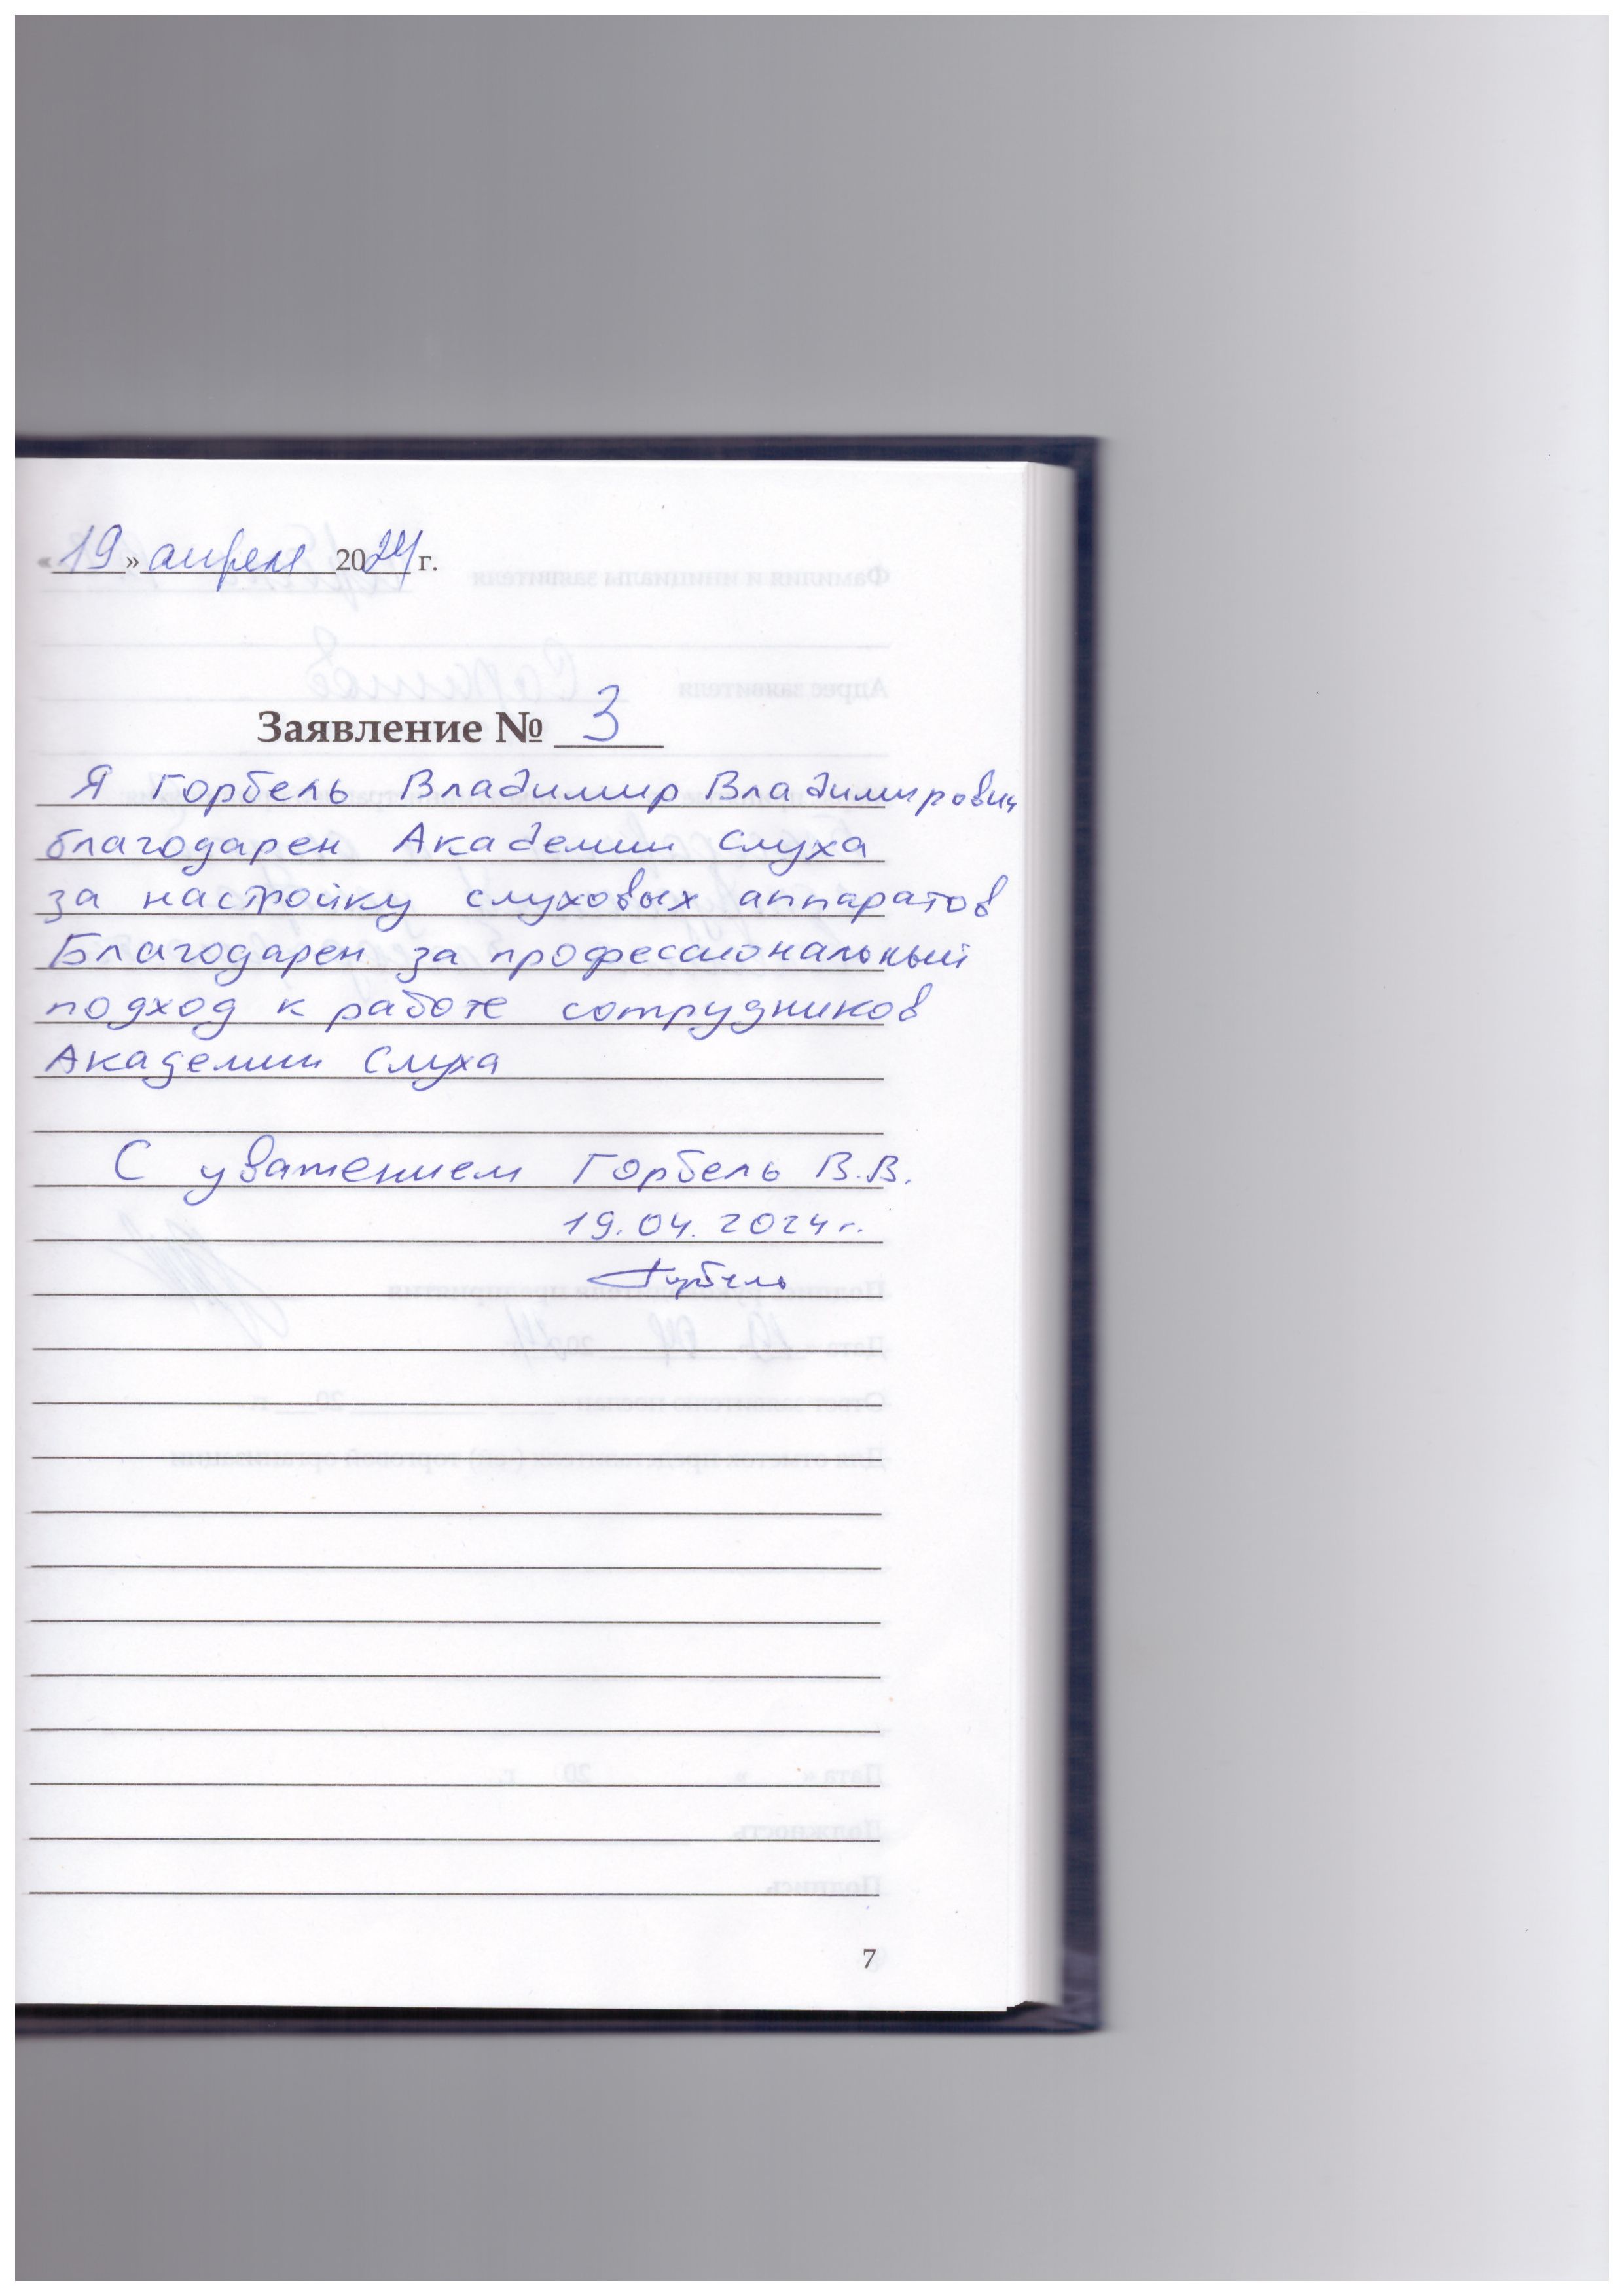 «19» апреля 2024 г.
Заявление № 3
Я Горбель Владимир Владимирович
благодарен Академии Слуха
за настройку слуховых аппаратов
Благодарен за профессиональный
подход к работе сотрудников
Академии Слуха
С уважением Горбель В.В.
19.04.2024г.
Горбель
7